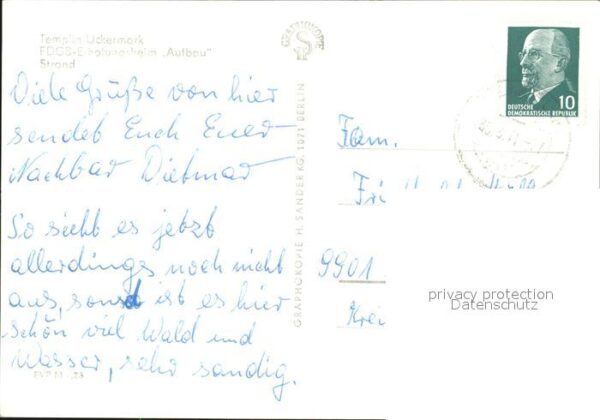 Templin Uckermark
FDGB-Erholungsheim „Aufbau"
Strand
GRAPHOKOPIE
Viele Grüße von hier
sendet Euch Euer
Nachbar Dietmar
So sieht es jetzt
allerdings noch nicht
aus, sonst ist es hier
schön viel Wald und
Wasser, sehr sandig.
GRAPHOKOPIE H. SANDER KG, 1071 BERLIN
10
DEUTSCHE
DEMOKRATISCHE REPUBLIK
Fam.
9901
Krei
privacy protection
Datenschutz